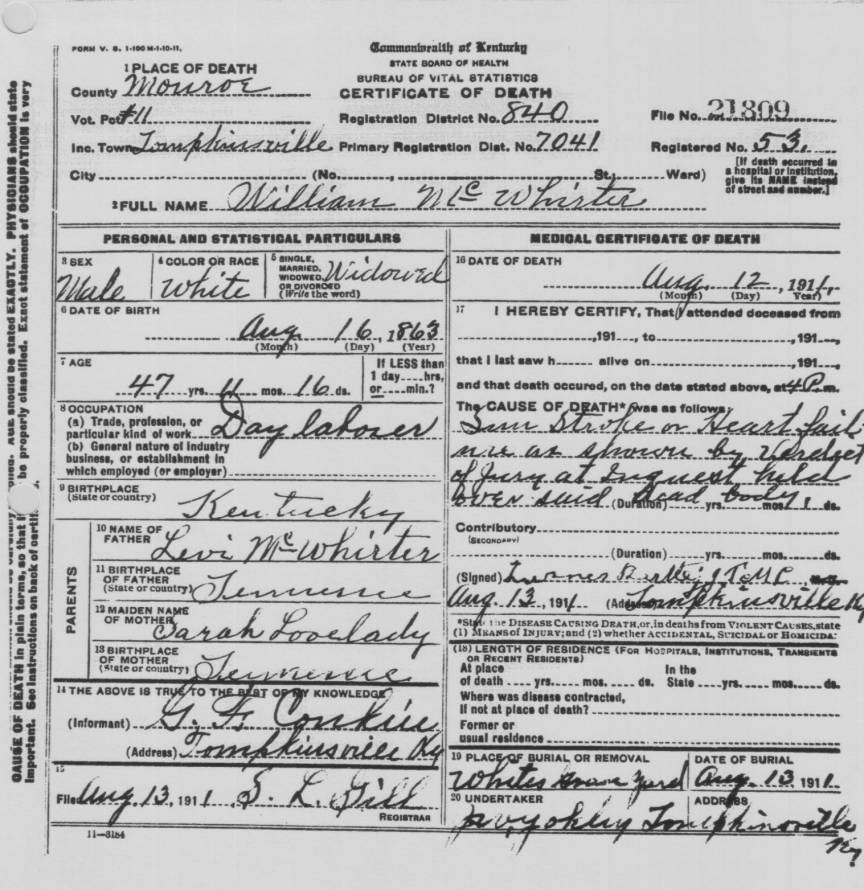 FORM V. S. 1-100 M-1-10-11.
Commonwealth of Kentucky
STATE BOARD OF HEALTH
BUREAU OF VITAL STATISTICS
CERTIFICATE OF DEATH
1 PLACE OF DEATH
County Monroe
Vot. Pct #11 Registration District No. 840 File No. 21809
Inc. Town Tompkinsville Primary Registration Dist. No. 7041 Registered No. 53.
City (No. , St.; Ward)
[If death occurred in a hospital or institution, give its NAME instead of street and number.]
2 FULL NAME William McWhirter
PERSONAL AND STATISTICAL PARTICULARS
3 SEX Male
4 COLOR OR RACE White
5 SINGLE, MARRIED, WIDOWED OR DIVORCED (Write the word) Widowed
6 DATE OF BIRTH
Aug 16, 1863
(Month) (Day) (Year)
7 AGE
47 yrs. 11 mos. 16 ds.
If LESS than 1 day hrs, or min.?
8 OCCUPATION
(a) Trade, profession, or
particular kind of work Day laborer
(b) General nature of industry
business, or establishment in
which employed (or employer)
9 BIRTHPLACE
(State or country)
Kentucky
PARENTS
10 NAME OF FATHER
Levi McWhirter
11 BIRTHPLACE OF FATHER
(State or country) Tennessee
12 MAIDEN NAME OF MOTHER
Sarah Lovelady
13 BIRTHPLACE OF MOTHER
(State or country) Tennessee
14 THE ABOVE IS TRUE TO THE BEST OF MY KNOWLEDGE
(Informant) G. F. Conkin
(Address) Tompkinsville Ky
15
Filed Aug. 13, 1911 S. L. Gill
REGISTRAR
11-3184
MEDICAL CERTIFICATE OF DEATH
16 DATE OF DEATH
Aug. 12, 1911,
(Month) (Day) Year)
17 I HEREBY CERTIFY, That I attended deceased from
,191 , to ,191 ,
that I last saw h alive on ,191 ,
and that death occured, on the date stated above, at 4 P. m.
The CAUSE OF DEATH* was as follows:
Sun Stroke or Heart fail-
ure as shown by Verdget
of Jury at Inquest held
over said Dead body,
(Duration) yrs. mos. 1 ds.
Contributory
(SECONDARY)
(Duration) yrs. mos. ds.
(Signed) J T M C
Aug. 13, 1911 (Address) Tompkinsville Ky
*State the DISEASE CAUSING DEATH, or, in deaths from VIOLENT CAUSES, state
(1) MEANS OF INJURY; and (2) whether ACCIDENTAL, SUICIDAL or HOMICIDAL
(18) LENGTH OF RESIDENCE (FOR HOSPITALS, INSTITUTIONS, TRANSIENTS
OR RECENT RESIDENTS)
At place of death yrs. mos. ds. In the State yrs. mos. ds.
Where was disease contracted,
If not at place of death?
Former or
usual residence
19 PLACE OF BURIAL OR REMOVAL
Whites Grave Yard
DATE OF BURIAL
Aug. 13, 1911
20 UNDERTAKER
ADDRESS
Tompkinsville
Ky